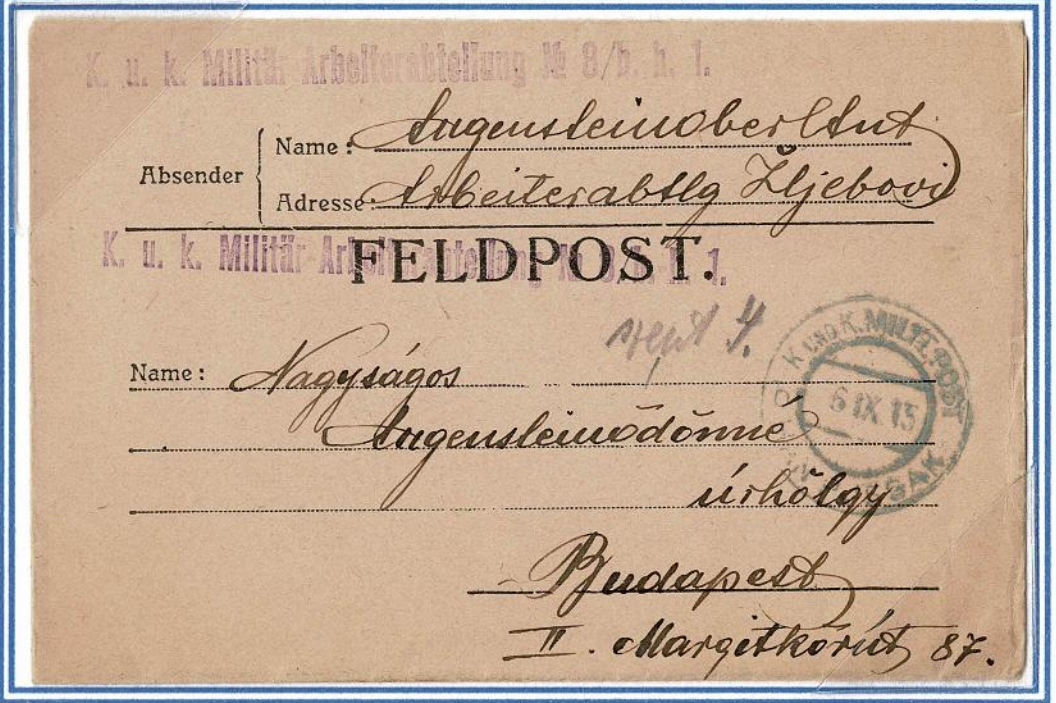 K. u. k. Militär-Arbeiterabteilung № 8/b. h. 1.
Absender
Name: Augenstein oberltnt
Adresse: Arbeiterabtlg Žljebovi
FELDPOST.
K. u. k. Militär-Arbeiterabteilung № 8/b. h. 1.
szept 4.
K. UND K. MILIT. POST
6 IX 15
Name: Nagyságos
Augenstein Ödönné
úrhölgy
Budapest
II. Margitkörút 87.